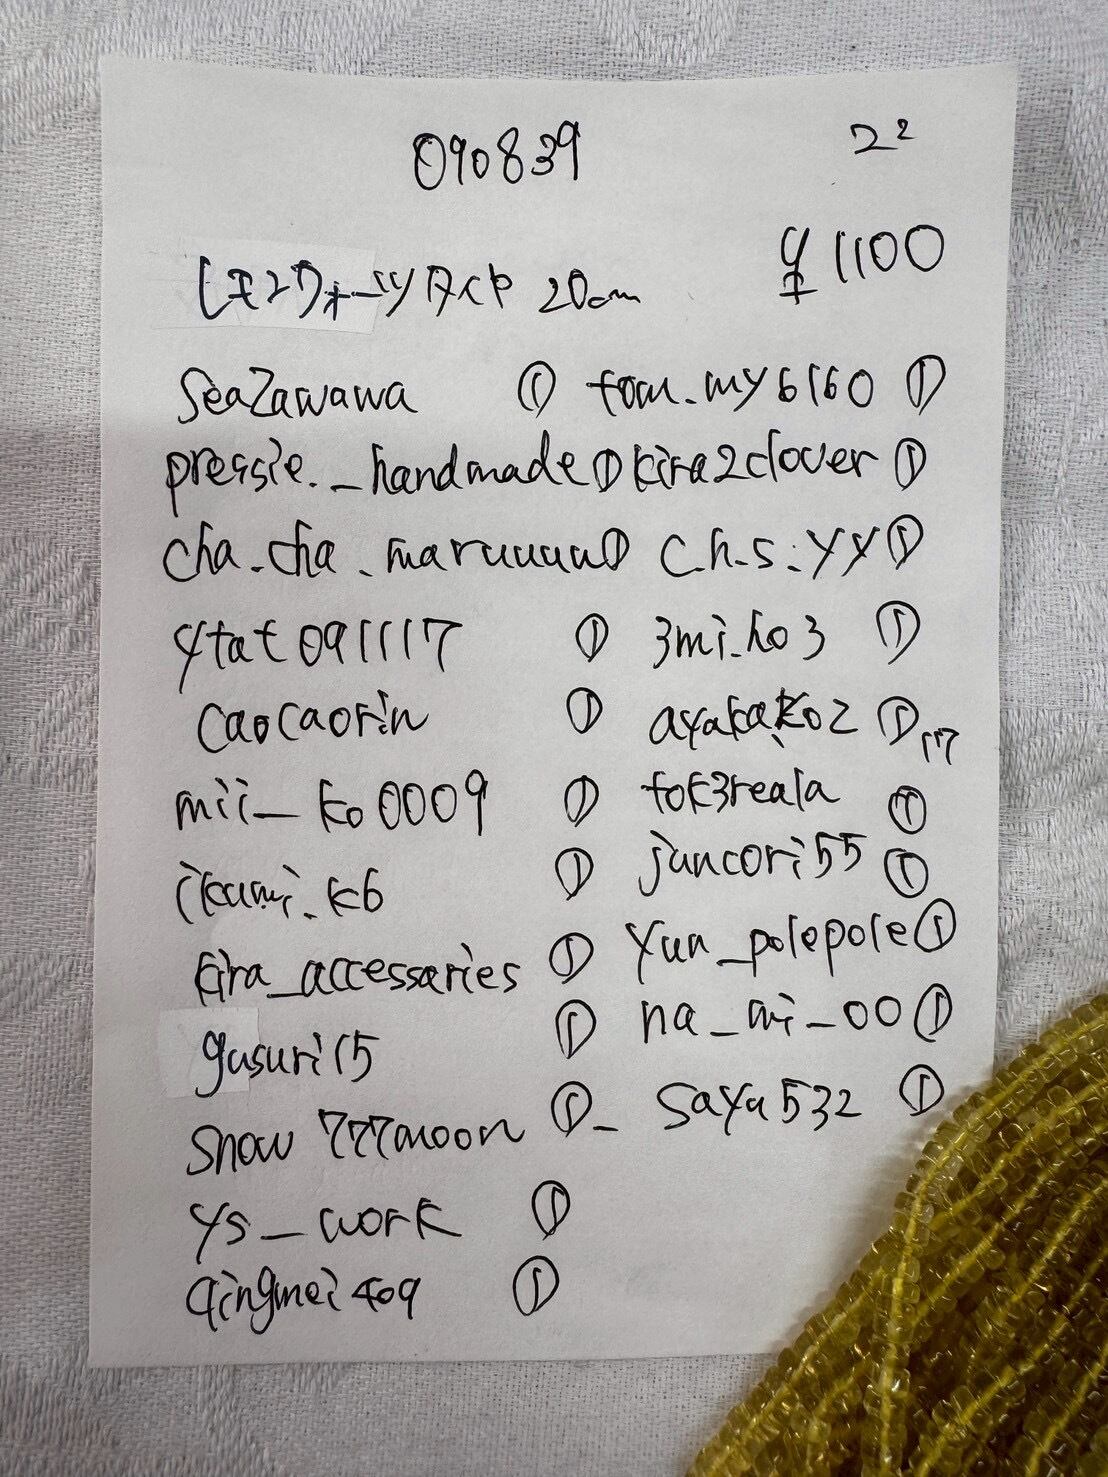 090839 2²
¥1100
レモンクォーツタイプ 20cm
SeaZawawa ① tom.my6160 ①
pressie._handmade ① kira2clover ①
cha.cha.maruuuu ① c.h.s.yy ①
ytat091117 ① 3mi.ho3 ①
caocaorin ① ayakako2 ① 117
mii_ko0009 ① tok3reala ①
ikumi.k6 ① juncori55 ①
kira_accessaries ① yun_polepole ①
gusuri15 ① na_mi_00 ①
snow777moon ① _sayu532 ①
ys_work ①
qingmei409 ①